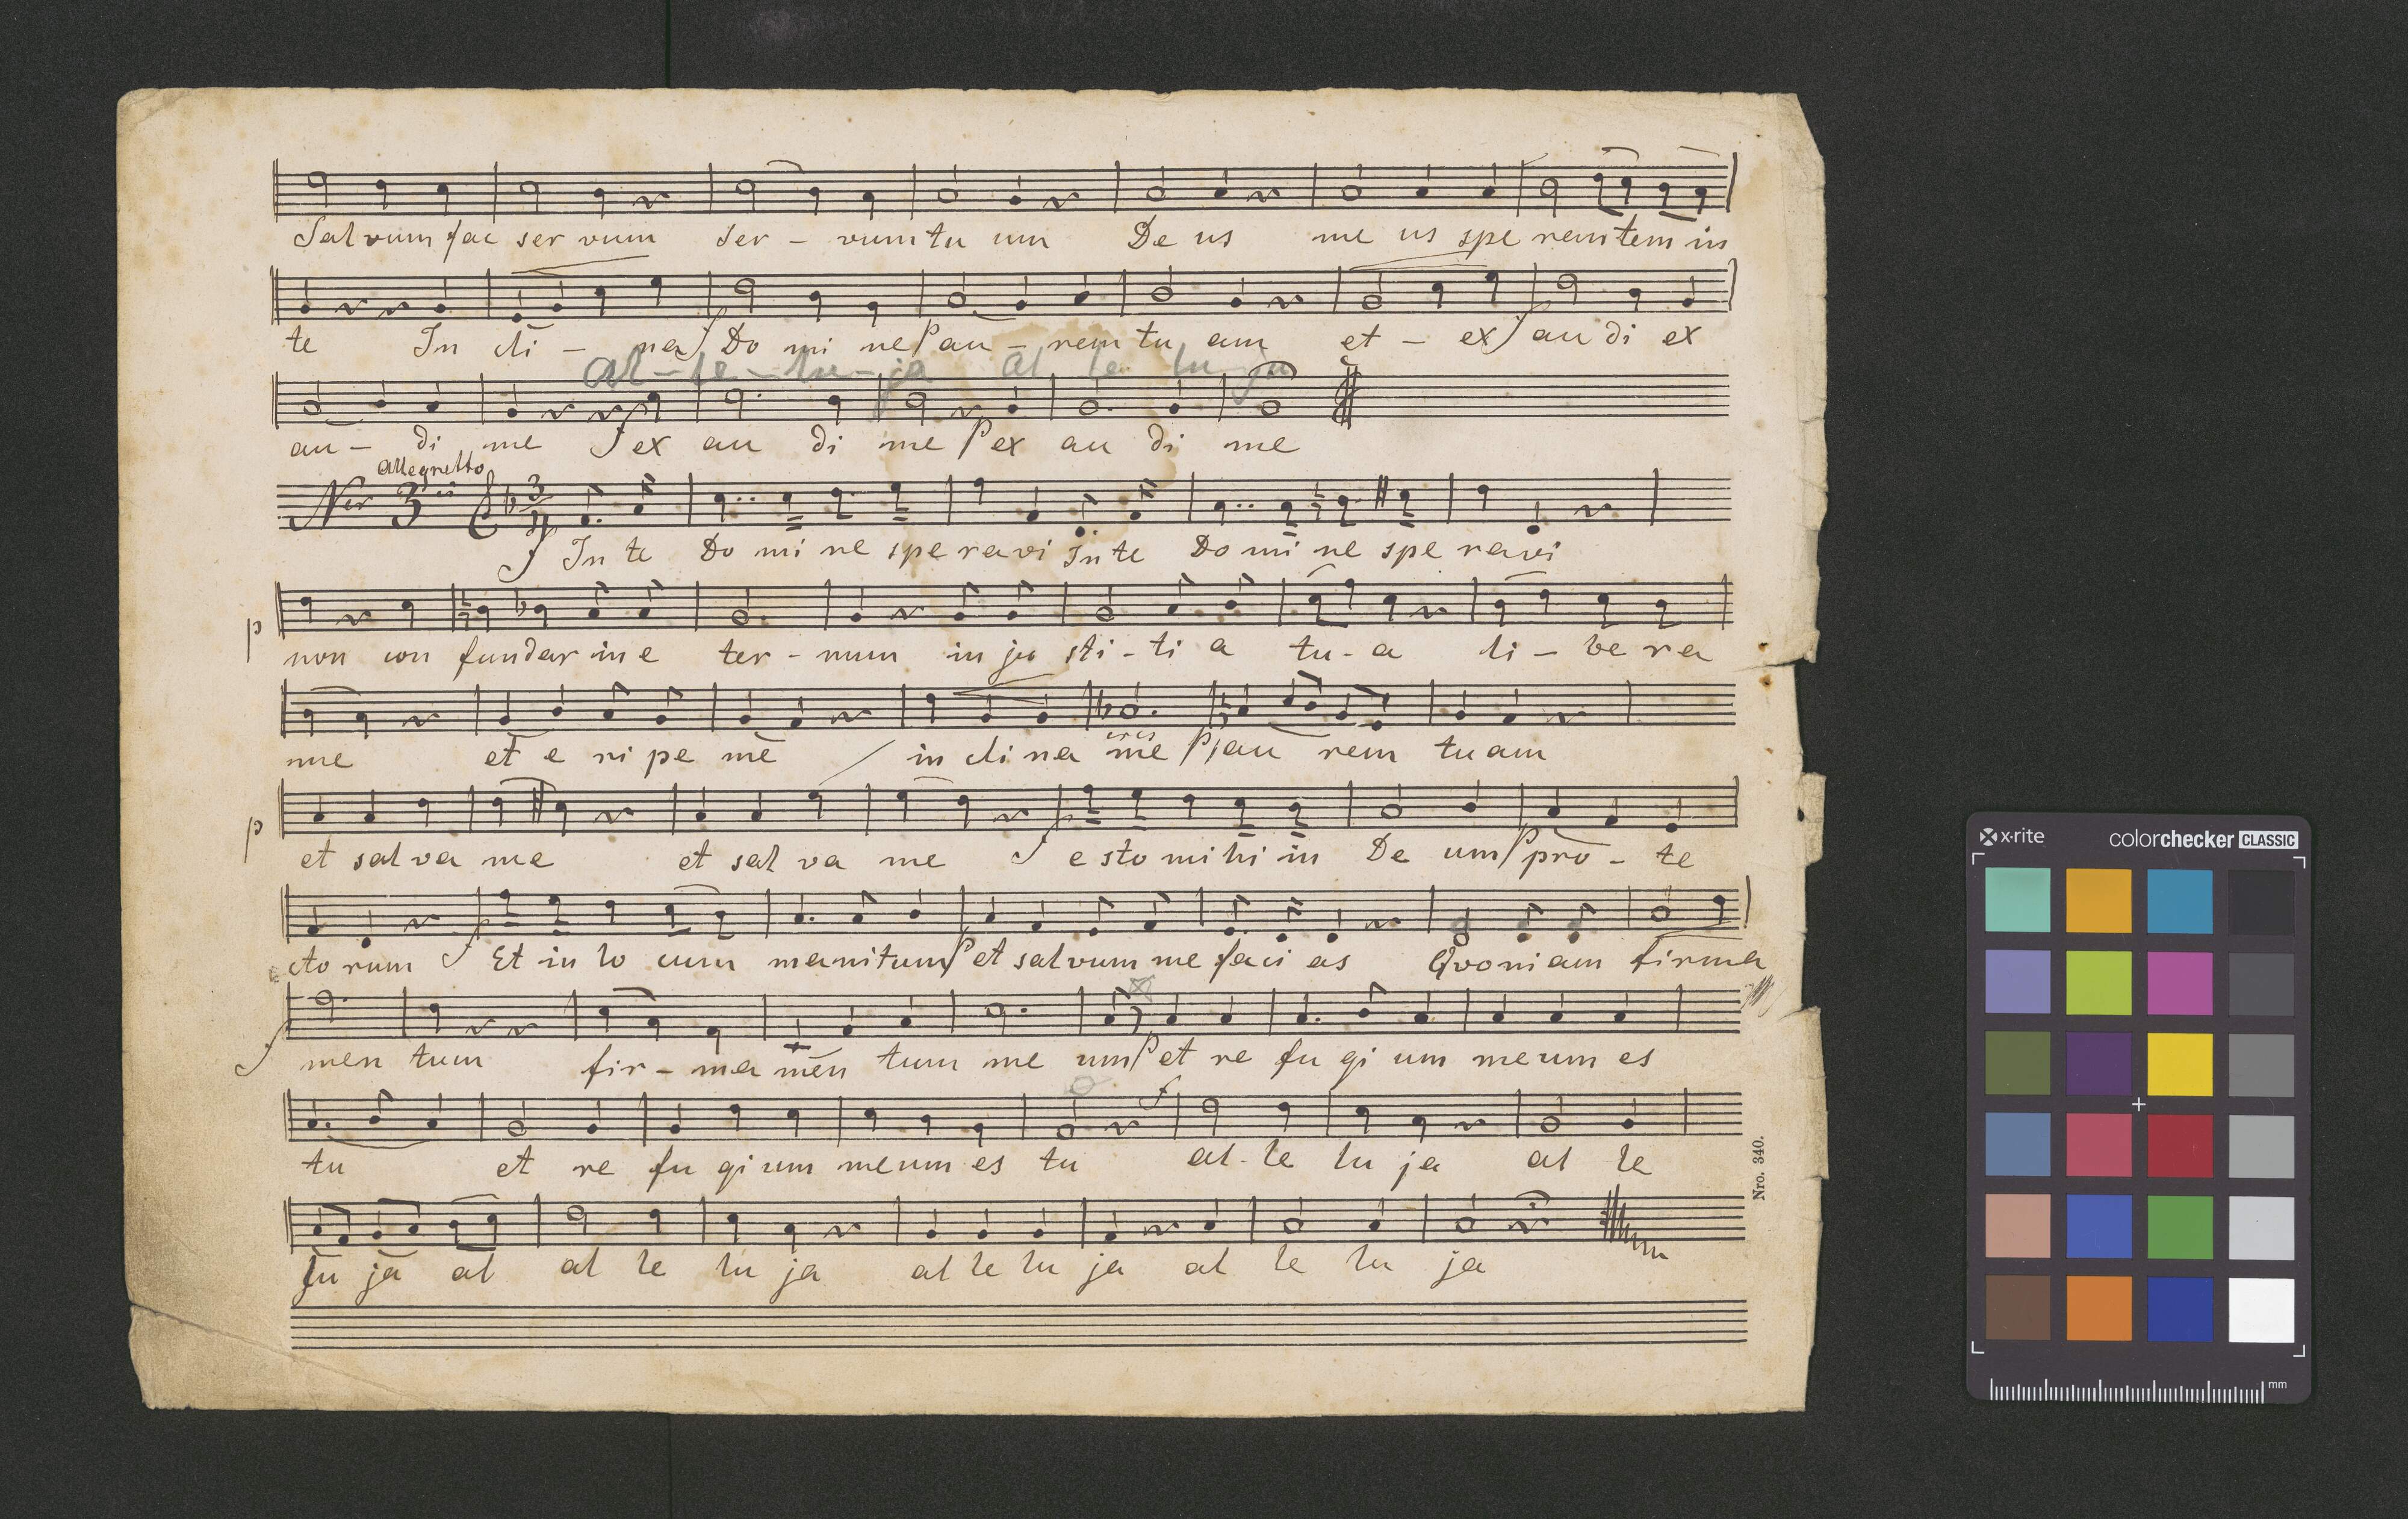 Salvum fac ser vum ser – vum tu um De us me us spe rantem in
te In cli – na f Do mi ne p au – rem tu am et – ex f au di ex
al – le – lu – ja al le lu ja
au – di me f ex au di me p ex au di me
Allegretto
Nro 3ii 3/4
f In te Do mi ne spe ravi In te Do mi ne spe ravi
p non con fundar in e ter – num in ju sti – ti a tu – a li – be ra
me et e ri pe me in cli na me p au rem tu am
cres
p et sal va me et sal va me f e sto mi hi in De um p pro – te
cto rum f Et in lo cum munitum p et salvum me faci as Quoniam firma
f men tum fir – ma men tum me um p et re fu gi um meum es
f
tu et re fu gi um meum es tu al – le lu ja al le
lu ja al al le lu ja al le lu ja al le lu ja
Nro. 340.
x·rite colorchecker CLASSIC
mm